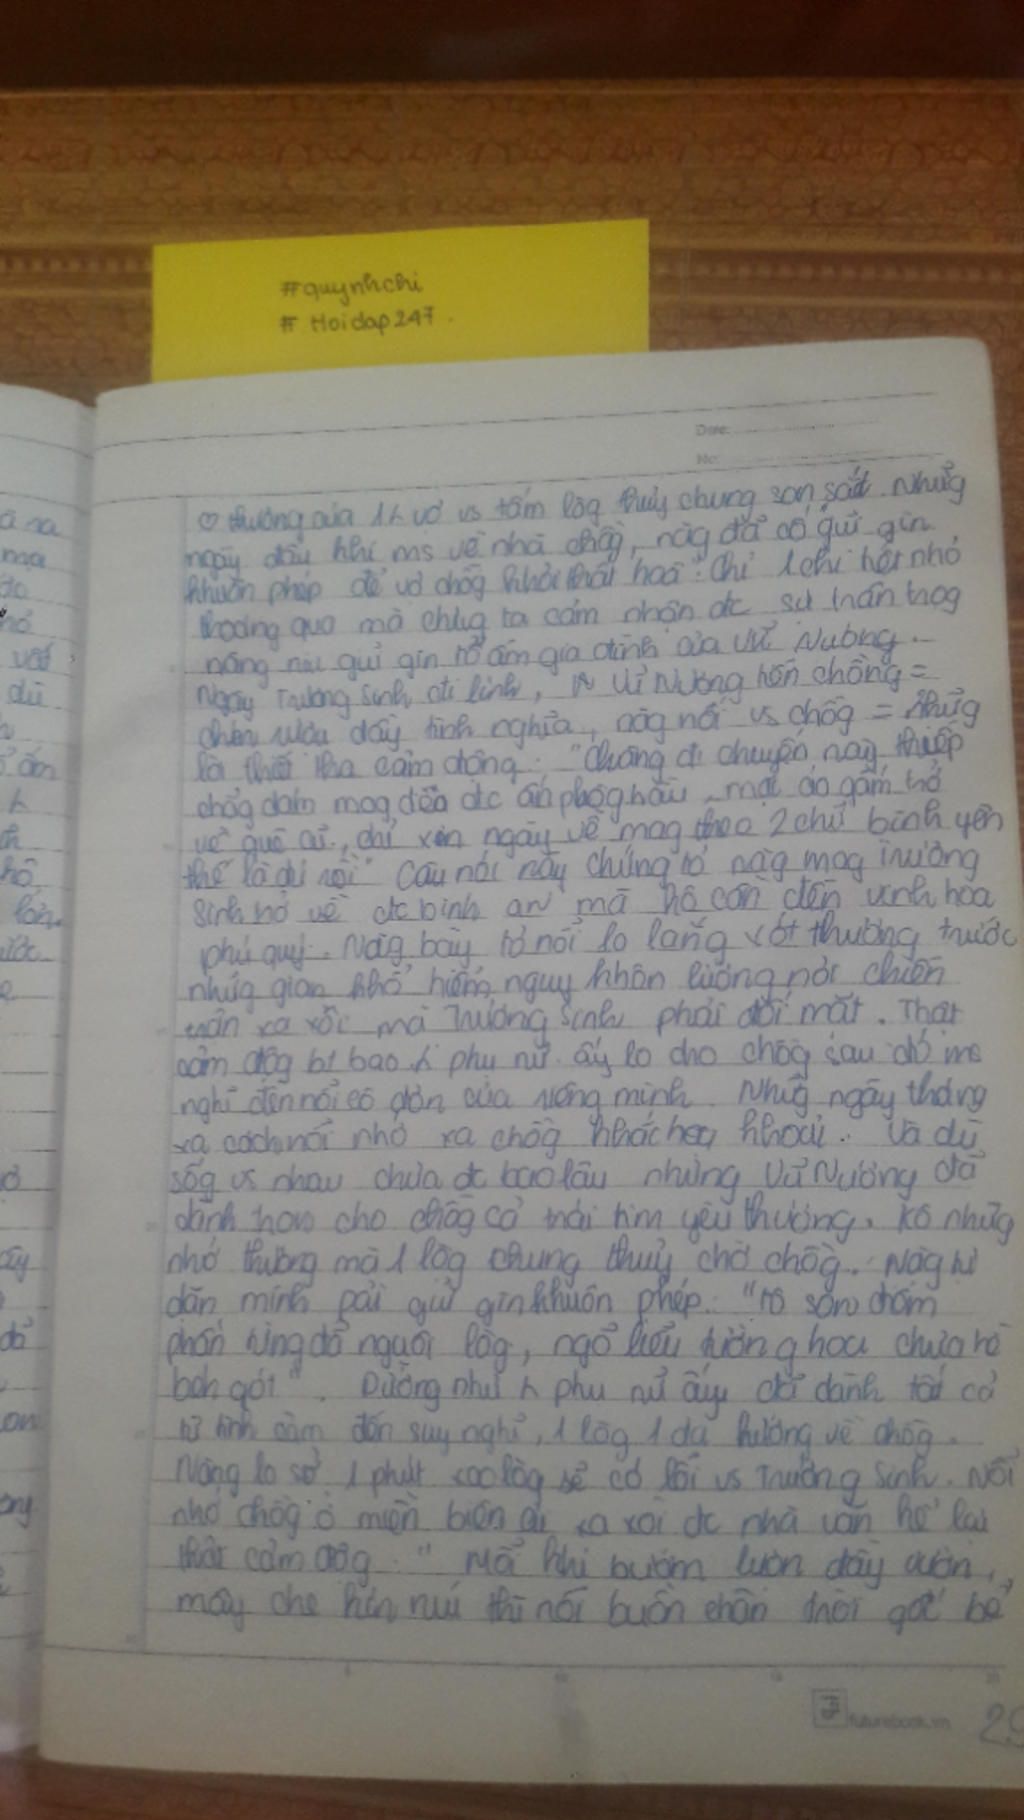 #quynhchi
# Hoidap247.
Date:
No:
♡ thương của 1 vợ vs tấm lòg thuỷ chung son sắt. Nhữg
ngày đầu khi ms về nhà chồg, nàg đã cố giữ gìn
khuôn phép để vợ chồg khỏi thất hoà. Chỉ 1 chi tiết nhỏ
thoáng qua mà chúg ta cảm nhận đc sự trân trọg
nâng niu giữ gìn tổ ấm gia đình của Vũ Nương.
Ngày Trương Sinh đi lính, Vũ Nương tiễn chồng =
chén rượu đầy tình nghĩa, nàg nói vs chồg = nhữg
lời thiết tha cảm động: "Chàng đi chuyến này, thiếp
chẳg dám mog đeo đc ấn phog hầu, mặc áo gấm trở
về quê cũ, chỉ xin ngày về mag theo 2 chữ bình yên
thế là đủ rồi" Câu nói này chứng tỏ nàg mog Trương
Sinh trở về đc bình an mà kô cần đến vinh hoa
phú quý. Nàg bày tỏ nỗi lo lắng xót thương trước
nhữg gian khổ, hiểm nguy khôn lường nơi chiến
trận xa xôi mà Trương Sinh phải đối mặt. Thật
cảm độg bt bao phụ nữ ấy lo cho chồg sau đó ms
nghĩ đến nỗi cô đơn của riêng mình. Nhữg ngày tháng
xa cách nỗi nhớ xa chồg khắc khoải. Và dù
sốg vs nhau chưa đc bao lâu nhưng Vũ Nương đã
dành trọn cho chồg cả trái tim yêu thương. Kô nhữg
nhớ thương mà 1 lòg chung thuỷ chờ chồg. Nàg tự
dặn mình pải giữ gìn khuôn phép: "tô son điểm
phấn từng đã nguôi lòg, ngõ liễu tường hoa chưa hề
bén gót". Dường như phụ nữ ấy đã dành tất cả
từ tình cảm đến suy nghĩ, 1 lòg 1 dạ hướng về chồg.
Nàng lo sợ 1 phút xao lòg sẽ có lỗi vs Trương Sinh. Nỗi
nhớ chồg ở miền biên ải xa xôi đc nhà văn kể lại
thật cảm độg. "Mỗi khi bướm lượn đầy vườn,
mây che kín núi thì nỗi buồn chân trời góc bể
futurebook.vn